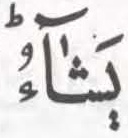 يَشَآءُ ؕ